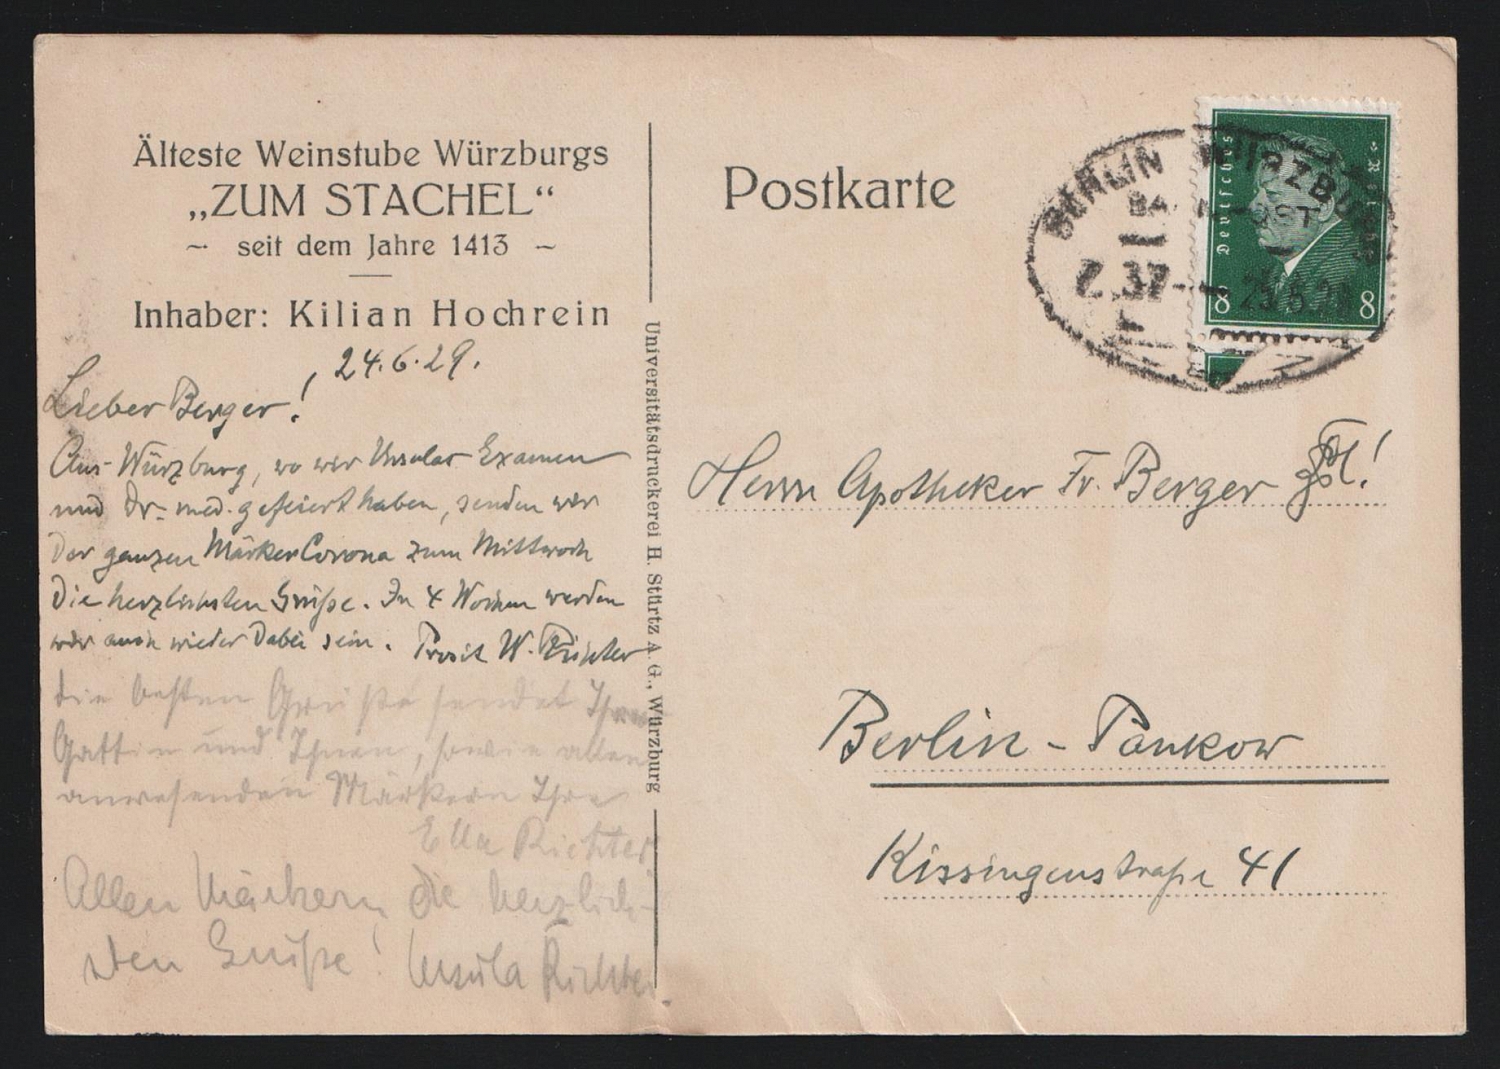 Älteste Weinstube Würzburgs
„ZUM STACHEL“
~ seit dem Jahre 1413 ~
Inhaber: Kilian Hochrein
24.6.29.
Lieber Berger!
Aus Würzburg, wo wir Ursulas Examen
und Dr. med. gefeiert haben, senden wir
der ganzen Märker Corona zum Mittwoch
die herzlichsten Grüße. In 4 Wochen werden
wir auch wieder dabei sein. Prosit W. Richter
die besten Grüße sendet Ihrer
Gattin und Ihnen, sowie allen
anwesenden Märkern Ihre
Ella Richter
Allen Märkern die herzlich-
sten Grüße! Ursula Richter.
Universitätsdruckerei H. Stürtz A. G., Würzburg
Postkarte
BERLIN WÜRZBURG
BAHNPOST
Z. 37
Deutsches Reich
8 8
Herrn Apotheker Fr. Berger
Berlin - Pankow
Kissingenstraße 41